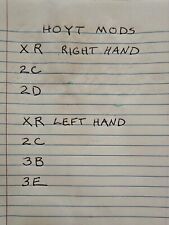 HOYT MODS
XR RIGHT HAND
2C
2D
XR LEFT HAND
2C
3B
3E